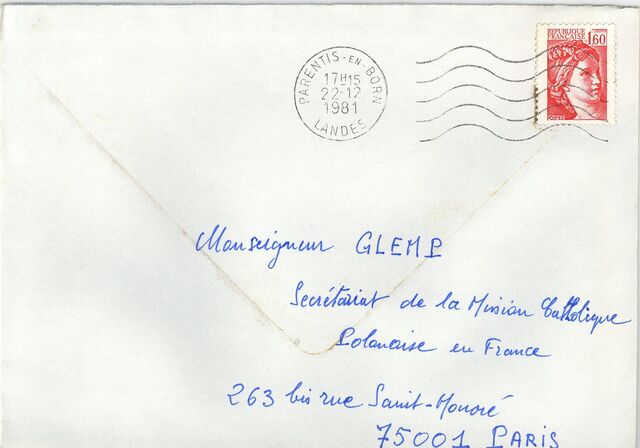 REPUBLIQUE
FRANÇAISE 1,60
PARENTIS-EN-BORN
17H15
22-12
1981
LANDES
Monseigneur GLEMP
Secrétariat de la Mission Catholique
Polonaise en France
263 bis rue Saint-Honoré
75001 PARIS